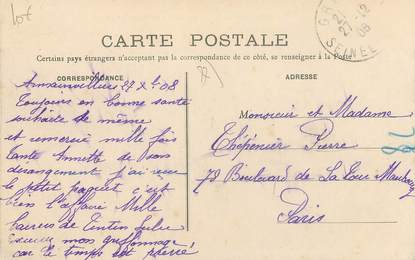 lot
CARTE POSTALE
Certains pays étrangers n'acceptant pas la correspondance de ce côté, se renseigner à la Poste
CORRESPONDANCE
ADRESSE
27 Xbre 08
Toujours en bonne santé
souhaite de même
et remercie mille fois
tante Annette de son
dérangement j'ai reçu
le petit paquet c'est
bien l'affaire Mille
baisers de Tintin Lulu
excuse mon griffonnage
car le temps est pressé
Monsieur et Madame
Thépenier Pierre
73 Boulevard de La Tour Maubourg
Paris
27 -12
08
SEINE